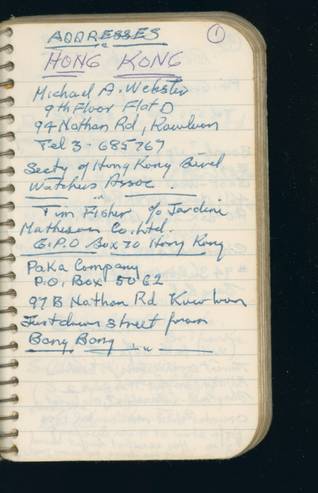 ADDRESSES
1
HONG KONG
Michael A. Webster
9th Floor Flat D
94 Nathan Rd, Kowloon
Tel 3 - 685767
Secty of Hong Kong
Watchers Assoc.
Tim Fisher c/o Jardine
Matheson Co. Ltd.
G.P.O Box 70 Hong Kong
Paka Company
P.O. Box 5062
97B Nathan Rd Kowloon
Just down street from
Bang Bang